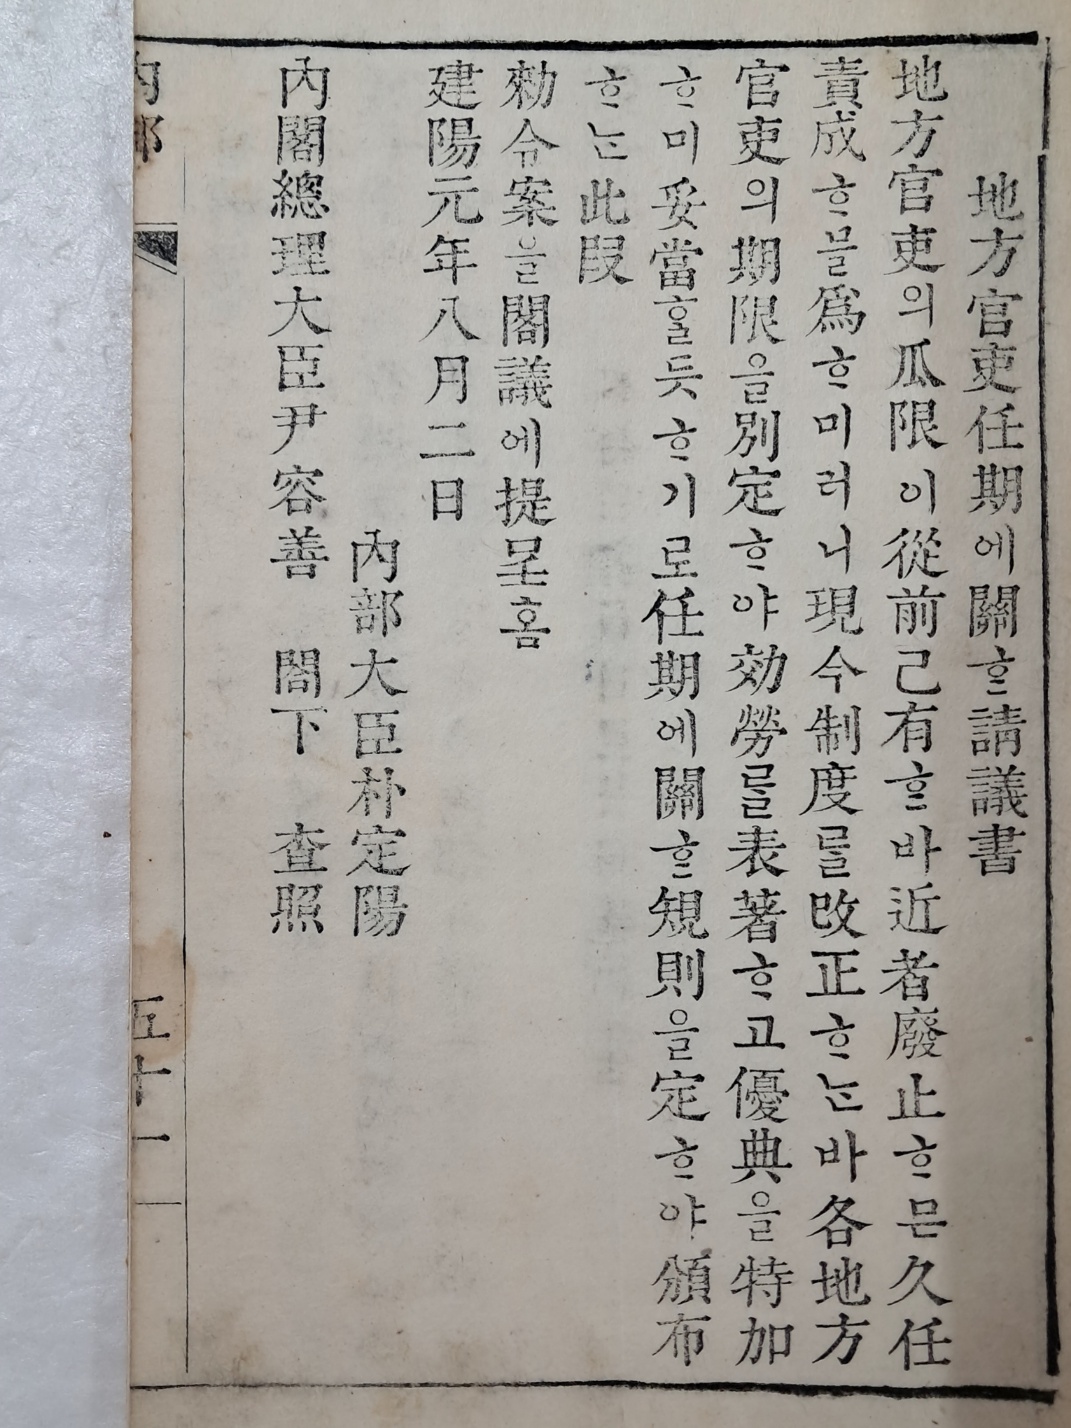 地方官吏任期에關ᄒᆞᆫ請議書
地方官吏의瓜限이從前已有ᄒᆞᆫ바近者廢止ᄒᆞ믄久任
責成ᄒᆞ믈爲ᄒᆞ미러니現今制度를改正ᄒᆞᄂᆞᆫ바各地方
官吏의期限을別定ᄒᆞ야効勞를表著ᄒᆞ고優典을特加
ᄒᆞ미妥當ᄒᆞᆯ듯ᄒᆞ기로任期에關ᄒᆞᆫ規則을定ᄒᆞ야頒布
ᄒᆞᄂᆞᆫ此段
勅令案을閣議에提呈홈
建陽元年八月二日
內部大臣朴定陽
內閣總理大臣尹容善 閣下 查照
內部 五十一